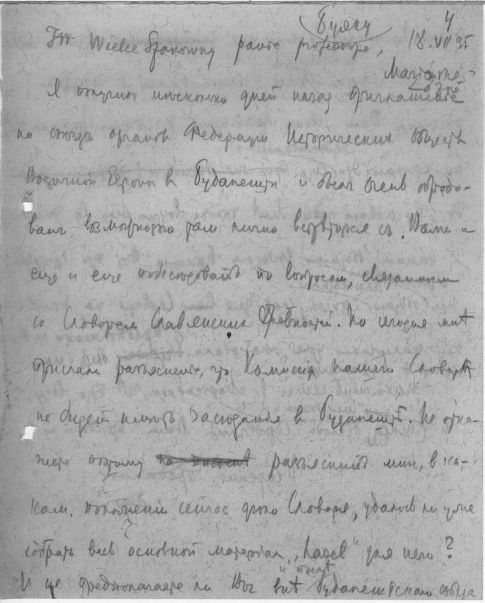 Буяку
4
Wielce Szanowny panie profesorze, 18.VII 35
Я получил несколько дней назад приглашение
на съезд органов Федерации Исторических Обществ
Восточной Европы в Будапешт и был очень обрадо-
ван возможностью там лично встретиться с Вами и
еще и еще побеседовать по вопросам связанным
со Словарем Славянских Древностей. Но сегодня мне
прислали разъяснение, что Комиссия нашего Словаря
не будет иметь заседание в Будапеште. Не отка-
жите поэтому разъяснить мне, в ка-
ком положении сейчас дело Словаря, удалось ли уже
собрать весь основной материал „haseł" для него?
И где предполагаете ли Вы вне Будапештского съезда